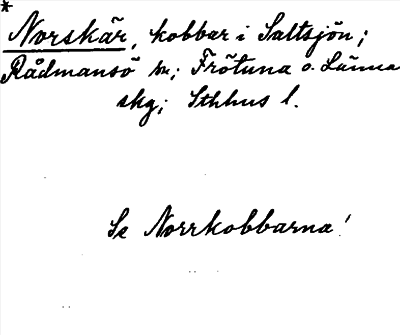 *
Norskär, kobbar i Saltsjön;
Rådmansö sn; Frötuna o. Länna
skg; Sthlms l.
Se Norrkobbarna!